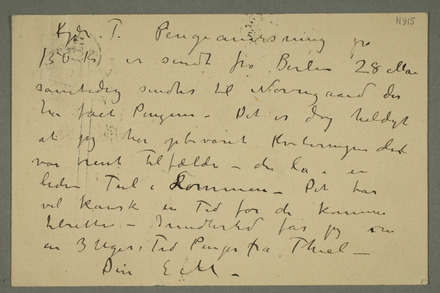 N 915
Kjær T. Pengeanvisning paa
130 Kr er sendt fra Berlin 28 Mai
samtidig sendtes til Nörregaard der
har faaet Pengene – Det er dog heldigt
at jeg har opbevaret Kvitteringen det
var rent tilfælde – den laa i en
liden Tul i Lommen – Det tar
vel kanske en Tid før de kommer
tilrette – Imidlertid faar jeg om
en 3 Ugers Tid Penge fra Thiel –
Din E M –